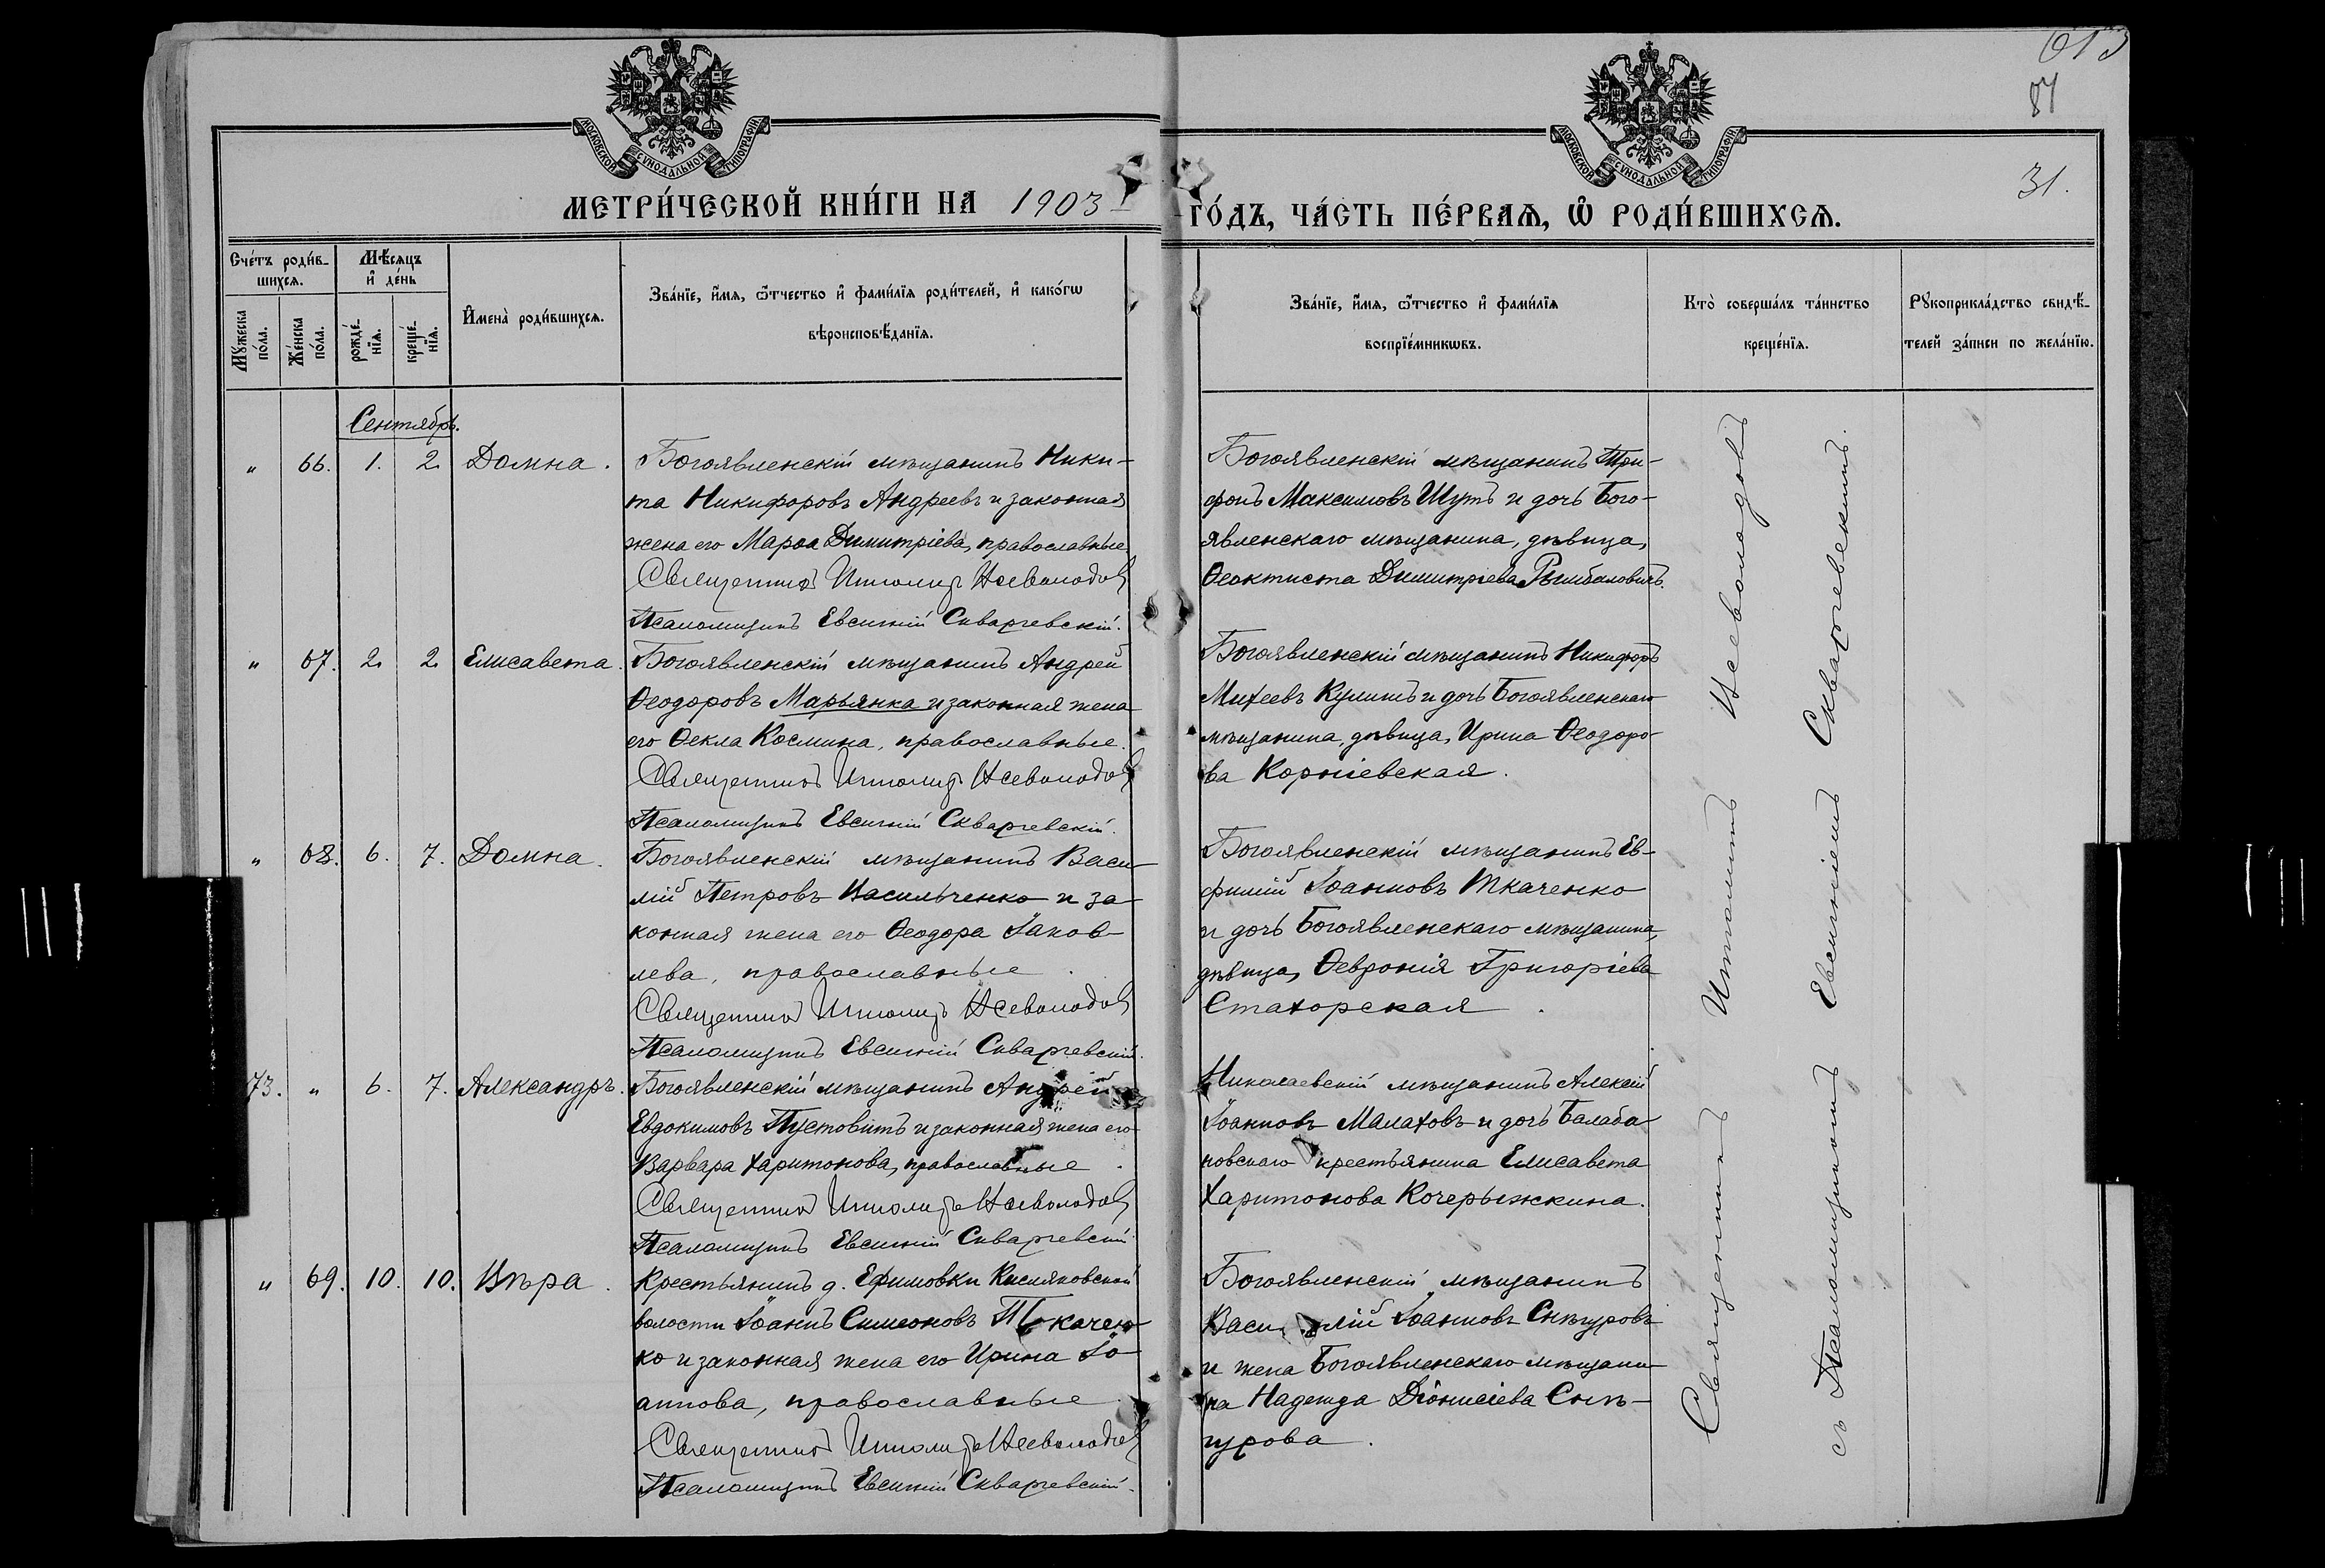 613
84
31.
МОСКОВСКОЙ СѴНОДАЛЬНОЙ ТИПОГРАФІИ
МОСКОВСКОЙ СѴНОДАЛЬНОЙ ТИПОГРАФІИ
МЕТРИ́ЧЕСКОЙ КНИ́ГИ НА 1903
ГО́ДЪ, ЧА́СТЬ ПЕ́РВАѦ, Ѡ РОДИ́ВШИХСѦ.
Сче́тъ роди́в-
шихсѧ.
Мѣ́сяцъ
и де́нь
Мꙋ́жеска
по́ла.
Же́нска
по́ла.
рожде́-
нїѧ.
креще́-
нїѧ.
Имена̀ роди́вшихсѧ.
Зва́нїе, и́мѧ, ѻ́тчество и фами́лїѧ роди́телей, и како́гѡ
вѣроисповѣ́данїѧ.
Зва́нїе, и́мѧ, ѻ́тчество и фами́лїѧ
воспрїе́мникѡвъ.
Кто̀ соверша́лъ та́инство
креще́нїѧ.
Рꙋкоприкла́дство свидѣ́-
телей за́писи по жела́нїю.
Сентябрь.
" 66. 1. 2. Домна.
Богоявленскій мѣщанинъ Ники-
та Никифоровъ Андреевъ и законная
жена его Марѳа Димитріева, православные.
Священникъ Ипполитъ Всеволодовъ
Псаломщикъ Евсигній Скваржевскій.
Богоявленскій мѣщанинъ Три-
фонъ Максимовъ Шутъ и дочь Бого-
явленскаго мѣщанина, дѣвица,
Ѳеоктиста Димитріева Рымбаловичъ.
" 67. 2. 2. Елисавета.
Богоявленскій мѣщанинъ Андрей
Ѳеодоровъ Марьянка и законная жена
его Ѳекла Космина, православные.
Священникъ Ипполитъ Всеволодовъ
Псаломщикъ Евсигній Скваржевскій.
Богоявленскій мѣщанинъ Никифоръ
Михеевъ Кулишъ и дочь Богоявленскаго
мѣщанина, дѣвица, Ирина Ѳеодоро-
ва Корніевская.
" 68. 6. 7. Домна.
Богоявленскій мѣщанинъ Васи-
лій Петровъ Васильченко и за-
конная жена его Ѳеодора Іаков-
лева, православные.
Священникъ Ипполитъ Всеволодовъ
Псаломщикъ Евсигній Скваржевскій.
Богоявленскій мѣщанинъ Ев-
фимій Іоанновъ Ткаченко
и дочь Богоявленскаго мѣщанина,
дѣвица, Ѳевронія Григоріева
Стахорская.
73. " 6. 7. Александръ.
Богоявленскій мѣщанинъ Андрей
Евдокимовъ Пустовитъ и законная жена его
Варвара Харитонова, православные.
Священникъ Ипполитъ Всеволодовъ
Псаломщикъ Евсигній Скваржевскій
Николаевскій мѣщанинъ Алексій
Іоанновъ Малаховъ и дочь Балаба-
новскаго крестьянина Елисавета
Харитонова Кочерыжкина.
" 69. 10. 10. Вѣра.
Крестьянинъ д. Ефимовки Кисляковской
волости Іоаннъ Симеоновъ Ткачен-
ко и законная жена его Ирина Іо-
аннова, православные.
Священникъ Ипполитъ Всеволодовъ
Псаломщикъ Евсигній Скваржевскій.
Богоявленскій мѣщанинъ
Василій Іоанновъ Снѣгуровъ
и жена Богоявленскаго мѣщани-
на Надежда Діонисіева Снѣ-
гурова.
Священникъ Ипполитъ Всеволодовъ
съ Псаломщикомъ Евсигніемъ Скваржевскимъ.